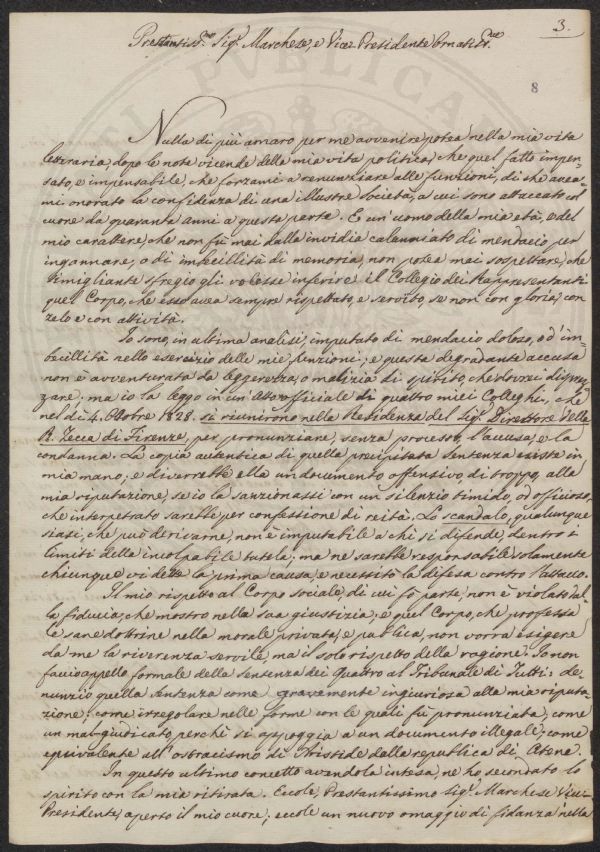 3.
Prestantiss.mo Sigr. Marchese, e Vice-Presidente Ornatiss.mo
8
Nulla di più amaro per me avvenire potea nella mia vita
letteraria, dopo le note vicende della mia vita politica, che quel fatto impen-
sato, e impensabile, che forzami a renunziare alle funzioni, di che avea-
mi onorato la confidenza di una illustre Società, a cui sono attaccato col
cuore da quaranta anni a questa parte. E un uomo della mia età, e del
mio carattere, che non fù mai dalla invidia calunniato di mendacio per
ingannare, o di imbecillità di memoria, non potea mai sospettare, che
simigliante sfregio gli volesse inferire il Collegio dei Rappresentanti
quel Corpo, che esso avea sempre rispettato, e servito, se non con gloria, con
zelo e con attività.
Io sono, in ultima analisi, imputato di mendacio doloso, o d'im-
becillità nello esercizio delle mie funzioni; e questa degradante accusa
non è avventurata da leggerezza, o malizia di spirito, che dovrei disprez-
zare; ma io la leggo in un'Atto officiale di quattro miei Colleghi, che
nel dì 4. Ottobre 1828. si riunirono nella Residenza del Sigr. Direttore della
R. Zecca di Firenze, per pronunziare, senza processo, l'accusa, e la
condanna. La copia autentica di quella precipitata sentenza esiste in
mia mano; e diverrebbe ella un documento offensivo, di troppo, alla
mia riputazione, se io la sanzionassi con un silenzio timido, od officioso,
che interpetrato sarebbe, per confessione di reità. Lo scandalo, qualunque
siasi, che può derivarne, non è imputabile a chi si difende, dentro i
limiti della incolpabile tutela; ma ne sarebbe responsabile solamente
chiunque vi dette la prima causa, e necessitò la difesa contro l'attacco.
Il mio rispetto al Corpo sociale, di cui fò parte, non è violato dal-
la fiducia, che mostro nella sua giustizia; e quel Corpo, che professa
le sane dottrine nella morale privata, e publica, non vorrà esigere
da me la riverenza servile, ma il solo rispetto della ragione. Io non
faccio appello formale della Sentenza dei Quattro al Tribunale di Tutti: de-
nunzio quella Sentenza come gravemente ingiuriosa alla mia riputa-
zione; come irregolare nelle forme con le quali fù pronunziata; come
un mal-giudicato, perchè si appoggia a un documento illegale; come
equivalente all'ostracismo di Aristide della republica di Atene.
In questo ultimo concetto avendola intesa, ne ho secondato lo
spirito con la mia ritirata. Eccole, Prestantissimo Sigr. Marchese Vice-
Presidente, aperto il mio cuore; eccole un nuovo omaggio di fidanza nella